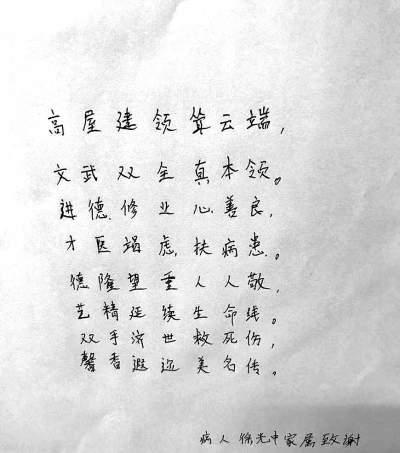 高屋建领耸云端,
文武双全真本领。
进德修业心善良,
才医竭虑扶病患。
德隆望重人人敬,
艺精延续生命线。
双手济世救死伤,
馨香遐迩美名传。
病人徐光中家属致谢